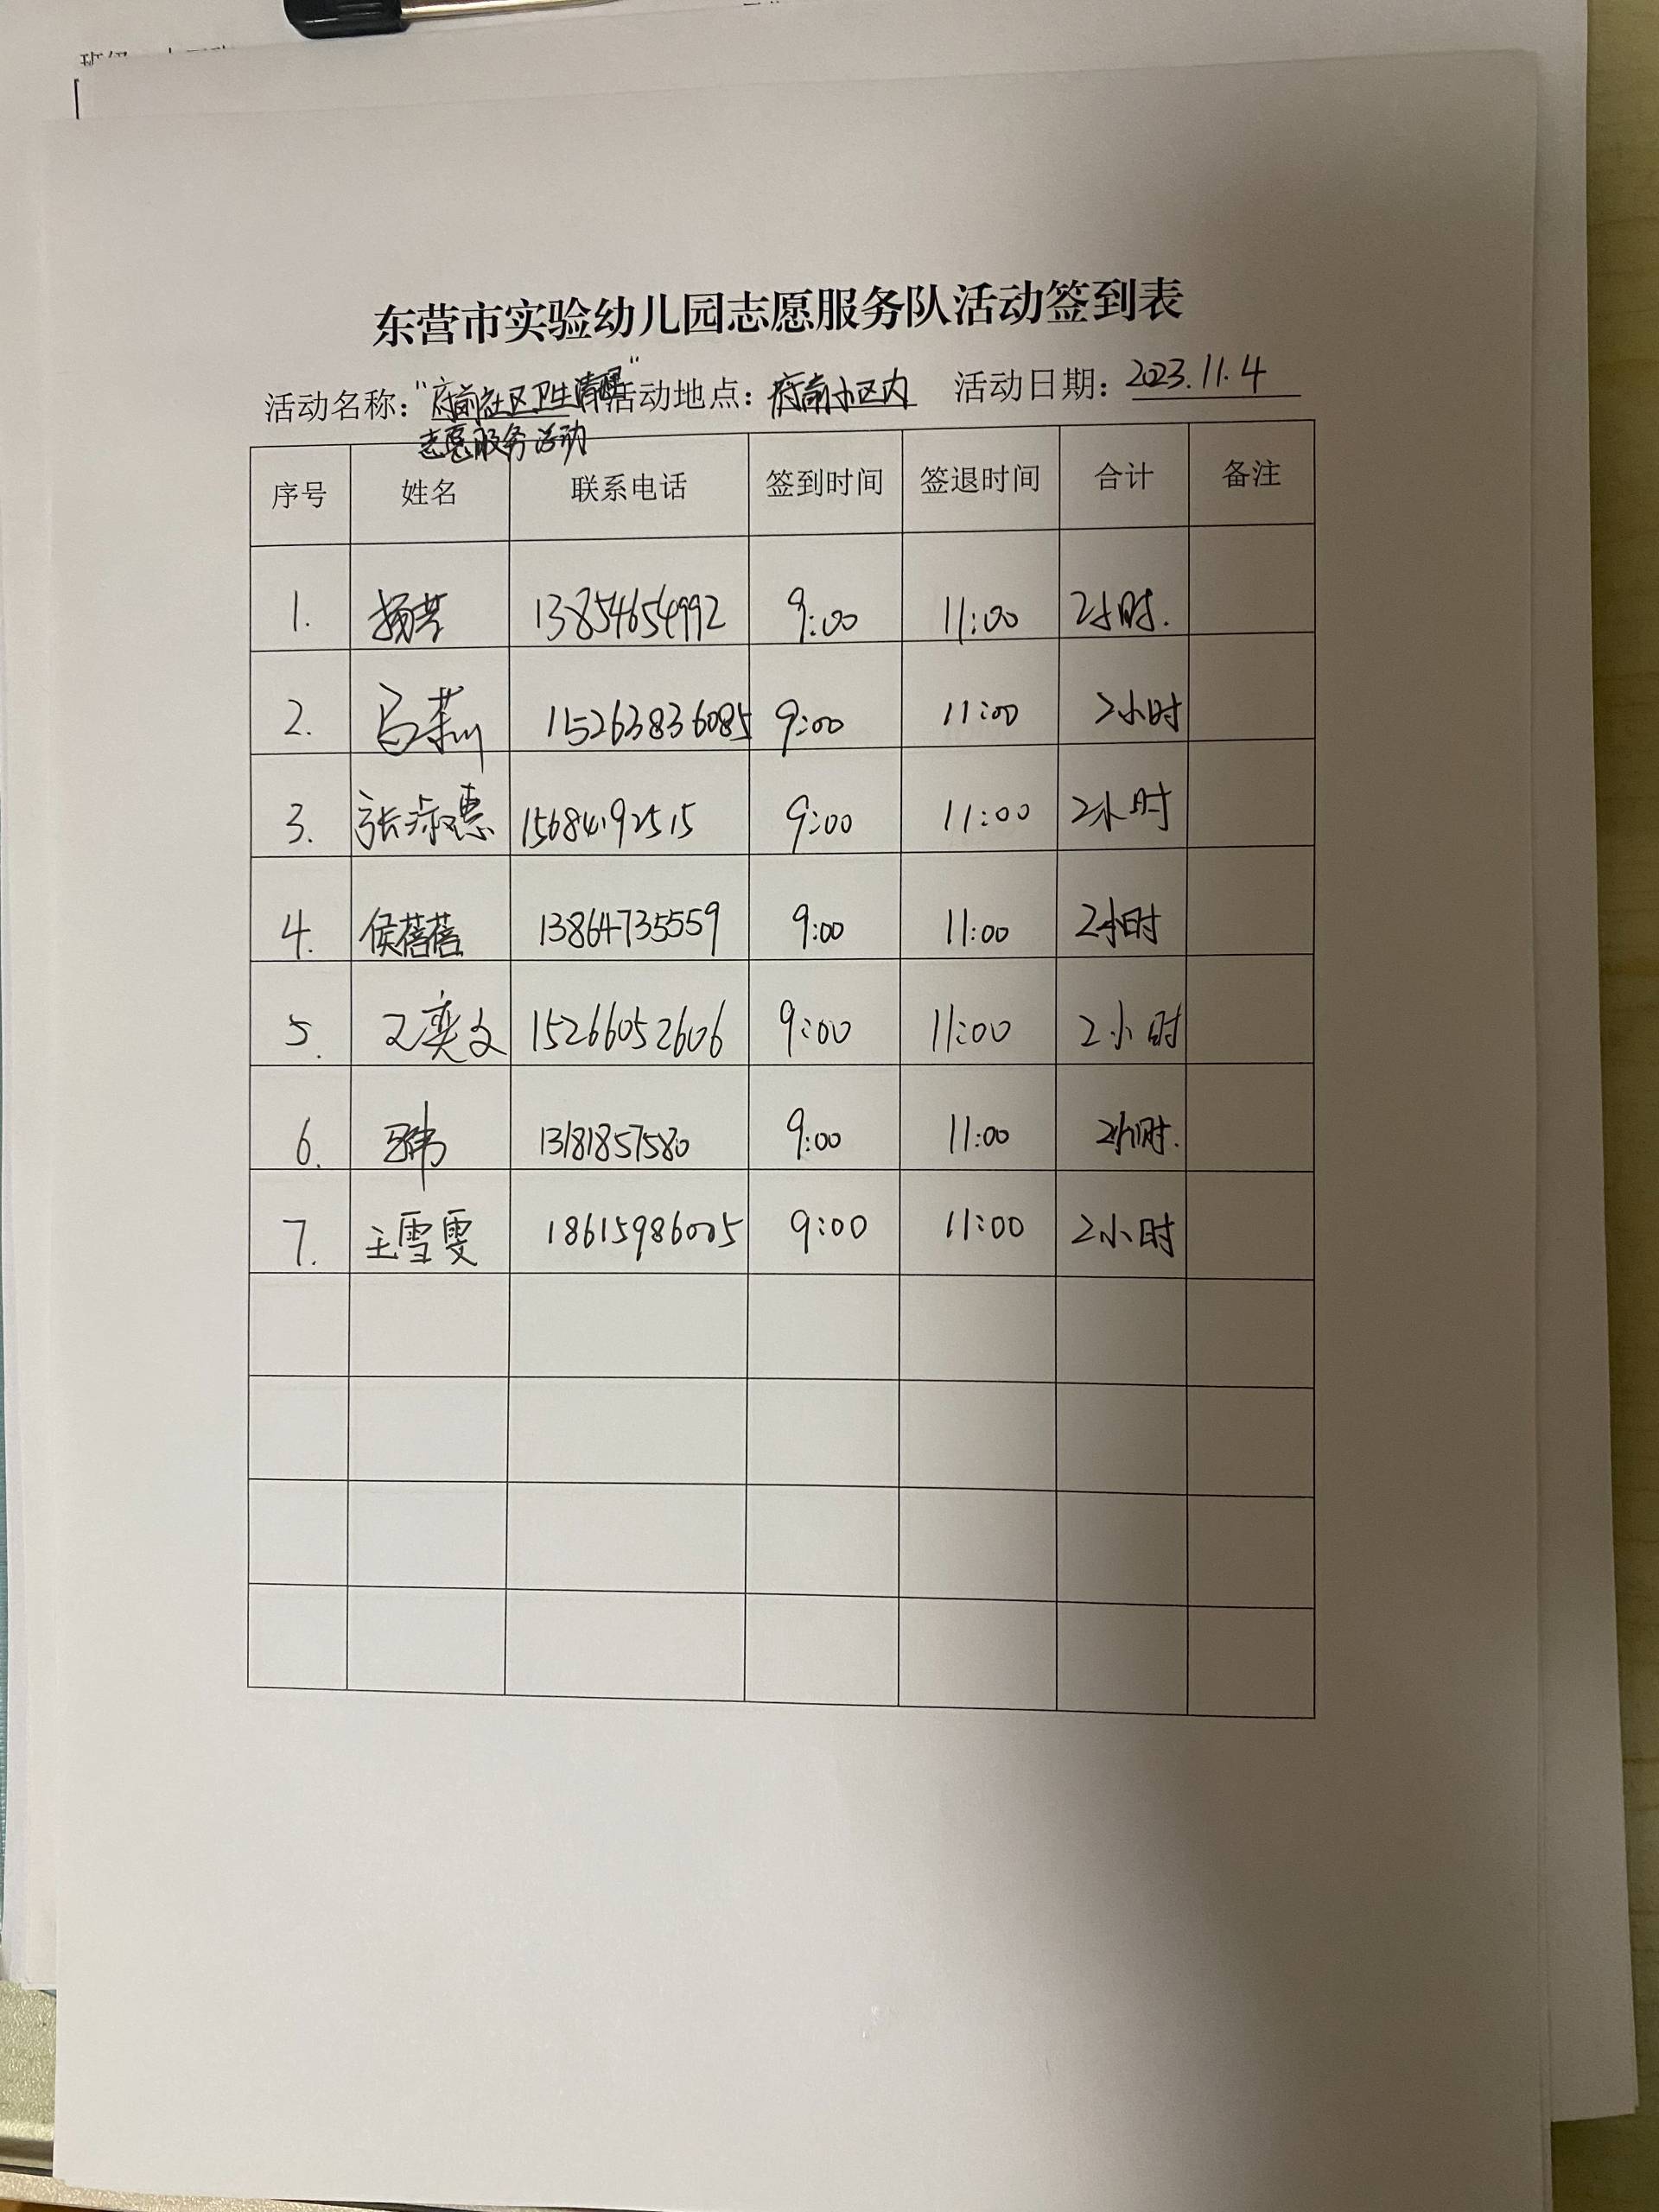 东营市实验幼儿园志愿服务队活动签到表
活动名称："府前社区卫生清理" 活动地点：府前小区内 活动日期：2023.11.4
志愿服务活动
序号 姓名 联系电话 签到时间 签退时间 合计 备注
1. 杨芸 13854654992 9:00 11:00 2小时.
2. 15263836085 9:00 11:00 2小时
3. 张淑惠 15684192515 9:00 11:00 2小时
4. 侯蓓蓓 13864735559 9:00 11:00 2小时
5. 王奕文 15266052606 9:00 11:00 2小时
6. 13181857580 9:00 11:00 2小时.
7. 王雪雯 18615986005 9:00 11:00 2小时